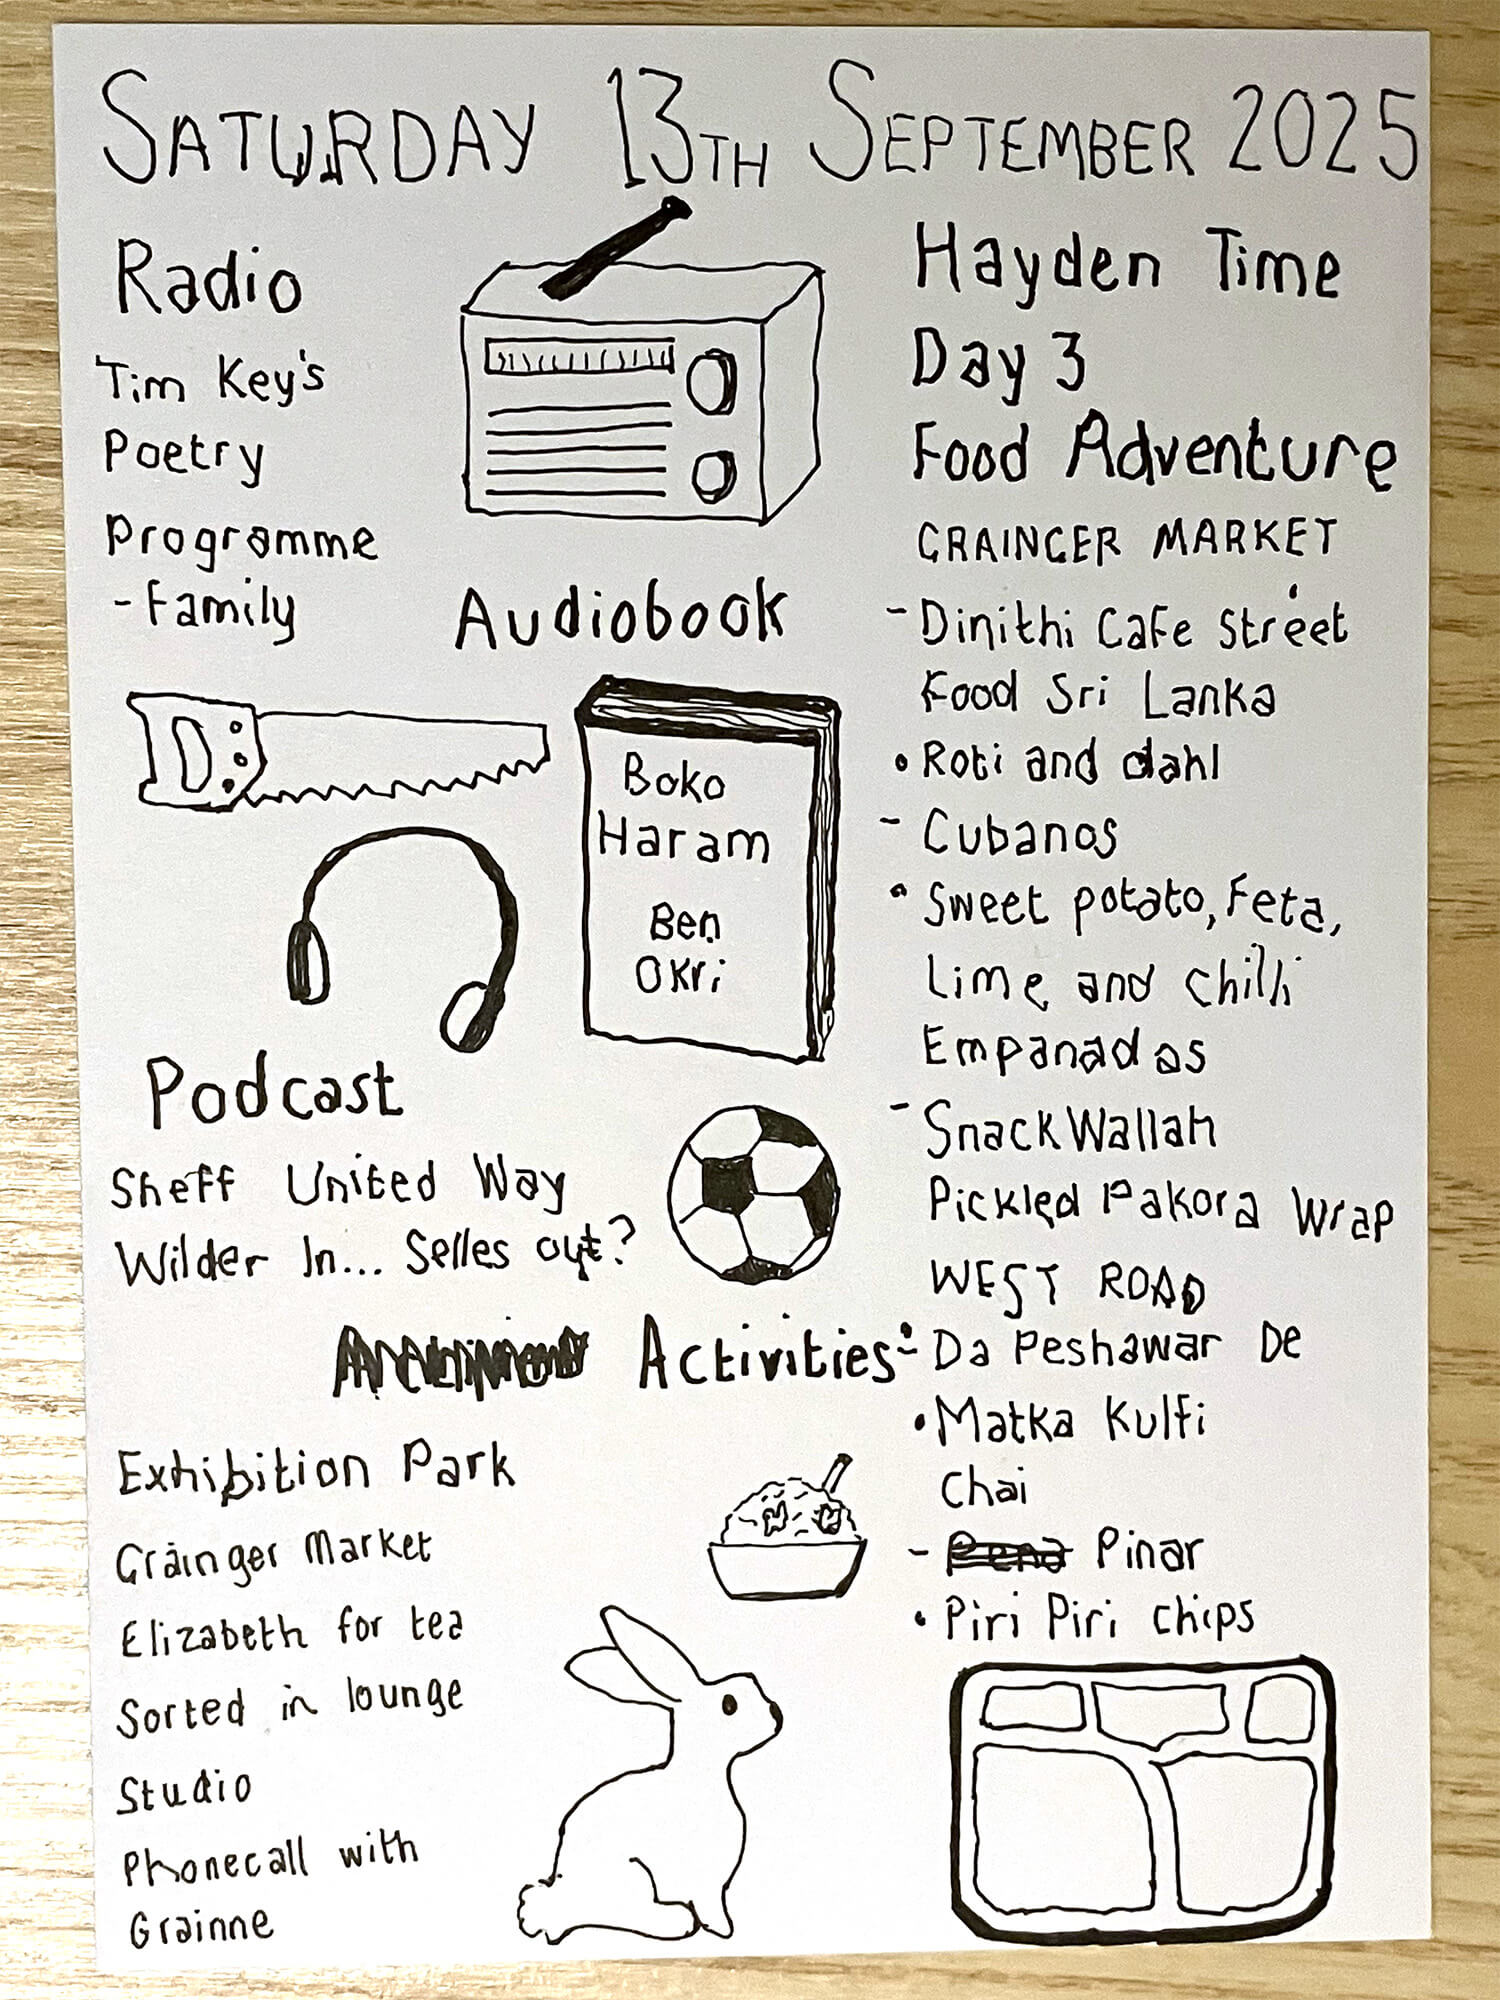 SATURDAY 13TH SEPTEMBER 2025
Radio
Tim Key's
Poetry
Programme
- Family
Audiobook
Boko
Haram
Ben
Okri
Podcast
Sheff United Way
Wilder In... Selles out?
Activities
Exhibition Park
Grainger Market
Elizabeth for tea
Sorted in lounge
Studio
Phonecall with
Grainne
Hayden Time
Day 3
Food Adventure
GRAINGER MARKET
- Dinithi Cafe Street
Food Sri Lanka
• Roti and dahl
- Cubanos
• Sweet potato, Feta,
Lime and Chilli
Empanadas
- Snack Wallah
Pickled Pakora Wrap
WEST ROAD
- Da Peshawar De
• Matka Kulfi
Chai
- Pinar
• Piri Piri chips